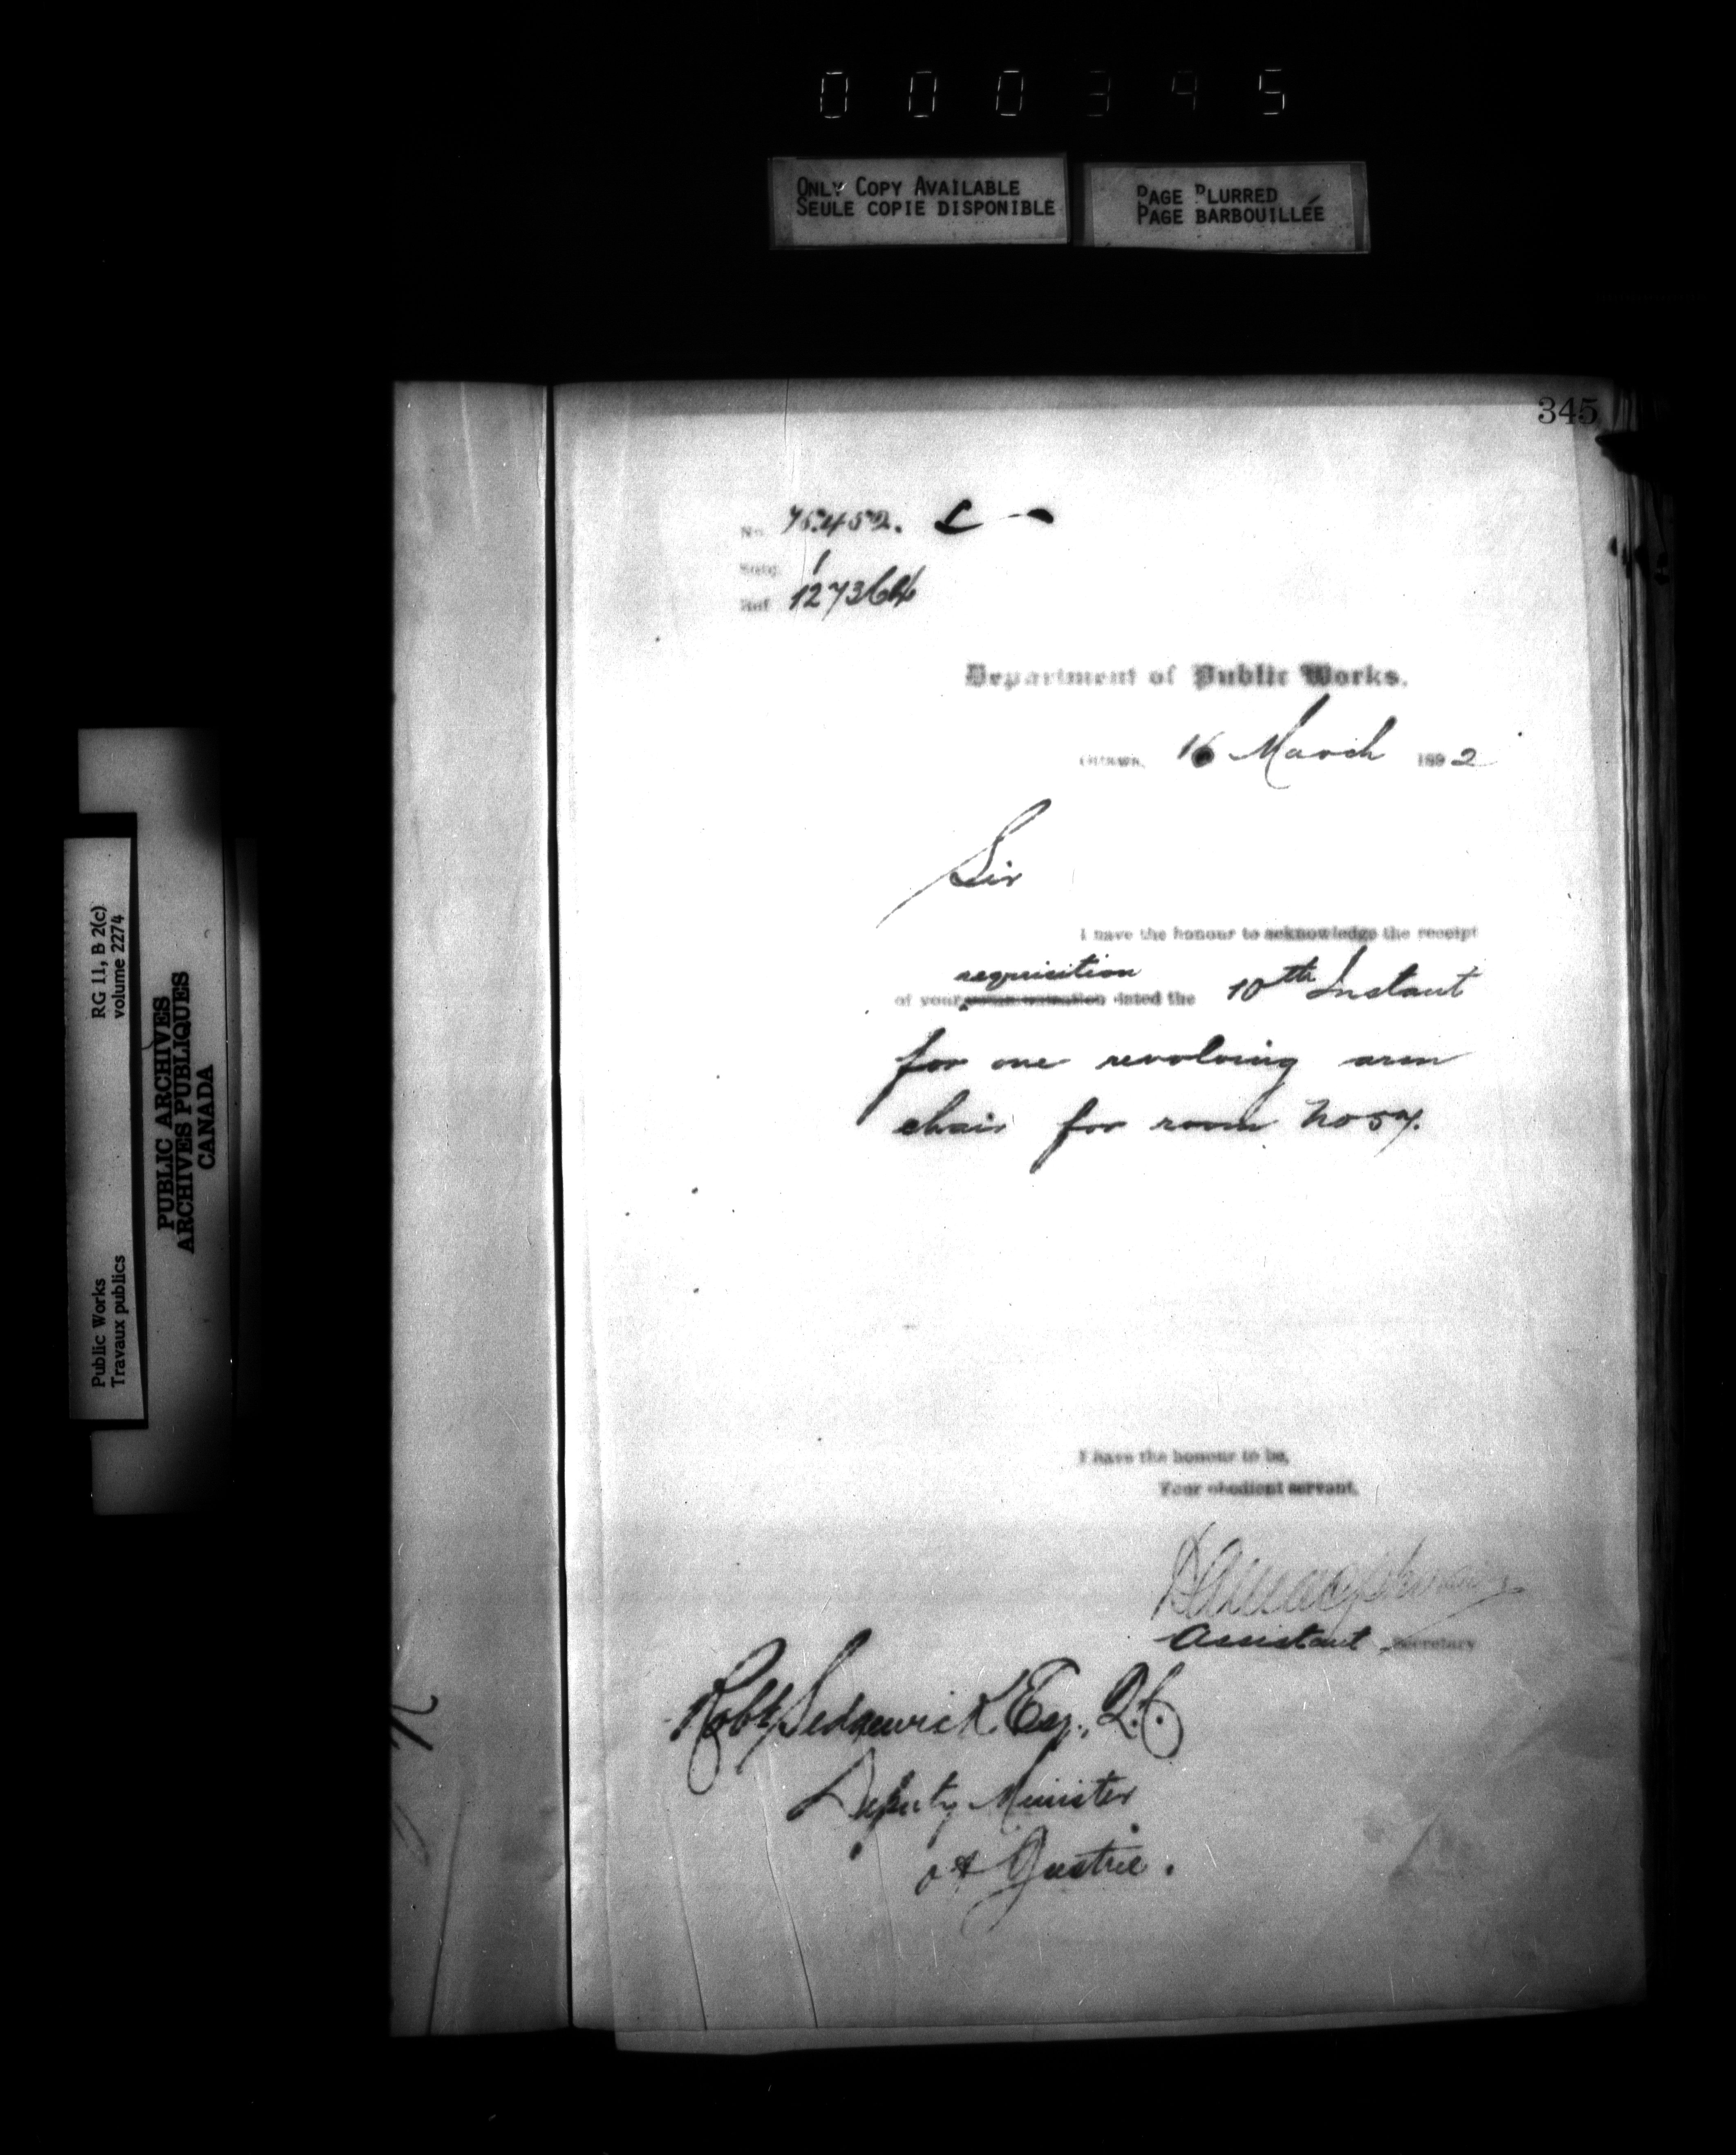 000395
ONLY COPY AVAILABLE
SEULE COPIE DISPONIBLE
PAGE BLURRED
PAGE BARBOUILLÉE
345
No. 75452.
Subj. 1
Ref. 127364
Department of Public Works.
Ottawa, 16 March 1892
Sir
I have the honour to acknowledge the receipt
requisition
of your communication dated the 10th Instant
for one revolving arm
chair for room No 57.
I have the honour to be,
Your obedient servant,
Assistant Secretary
Robt Sedgewick Esq., Q.C.
Deputy Minister
of Justice.
RG 11, B 2(c)
volume 2274
Public Works
Travaux publics
PUBLIC ARCHIVES
ARCHIVES PUBLIQUES
CANADA